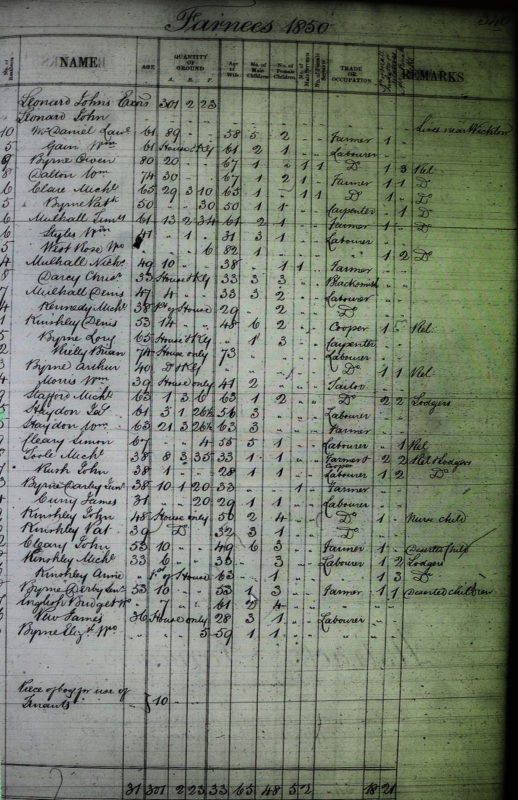 Farnees 1850
No. of Residents NAME AGE QUANTITY OF GROUND A. R. P. Age of Wife No. of Male Children No. of Female Children TRADE OR OCCUPATION REMARKS
Leonard John's Exors 301 2 23
Leonard John
10 McDaniel Lawe 61 89 " " 58 5 2 Farmer 1 Lives near Wicklow
5 Gain Wm 61 House & Kg 61 2 1 Labourer
9 Byrne Owen 80 20 " " 67 1 " 1 1 Do 1 3 Rel
8 Dalton Wm 74 30 " " 67 1 2 1 Farmer 1 1 Do
6 Clare Michl 65 29 3 10 63 1 " 1 1 Do 1 Do
5 Byrne Patk 50 " " 30 50 1 1 Carpenter 1 Do
6 Mulhall Jams 61 13 2 34 61 2 1 Farmer 1 Do
6 Styles Wm 47 " 1 " 31 3 1 Labourer
5 West Rose Wo " " 6 82 1 1 2 Do
4 Mulhall Nichs 49 10 " " 38 " 1 1 Farmer
8 Darcy Chris 33 House & Kg 33 3 3 Blacksmith
7 Mulhall Denis 47 4 " " 33 3 2 Labourer
4 Kennedy Michl 38 Pt of House 29 " 2 Do
Kinshley Denis 53 14 " " 48 6 2 Cooper 1 5 Rel
5 Byrne Lory 65 House & Kg " 1 3 Carpenter
2 Reilly Brian 74 House only 73 Labourer
Byrne Arthur 40 Do & Kg Do 1 1 Rel
4 Morris Wm 39 House only 41 2 Tailor
9 Stafford Michl 63 1 3 6 63 1 2 Do 2 2 Lodgers
Haydon Jas 61 3 1 26½ 56 3 Labourer
Haydon Wm 63 21 3 26½ 63 3 Farmer
9 Cleary Simon 67 " " 4 55 5 1 Labourer 1 Rel
Toole Michl 38 8 3 35 33 1 1 Farmer & Cooper 2 2 Rel & Lodgers
7 Rush John 38 1 " " 28 1 1 Labourer 1 2 Do
Byrne Darby Junr 38 10 1 20 33 " 1 Farmer
4 Curry James 31 " " 20 29 1 1 Labourer
Kinshley John 48 House only 50 2 4 Do 1 Nurse child
Kinshley Pat 39 Do 32 3 1 Do
Cleary John 53 10 " " 49 6 3 Farmer 1 Deserted Child
Kinshley Michl 33 6 " " 33 3 Labourer 1 2 Lodgers
Kinshley Anne Pt of House 63 1 1 3 Do
Byrne Derby Senr 53 10 " " 53 1 3 Farmer 1 1 Deserted children
Bridget Wo 61 2 4
New James 36 House only 28 3 1 Labourer
Byrne Elizth Wo 5 59 1 1
Piece of bog for use of
Tenants } 10
31 301 2 23 33 65 48 5 2 18 21